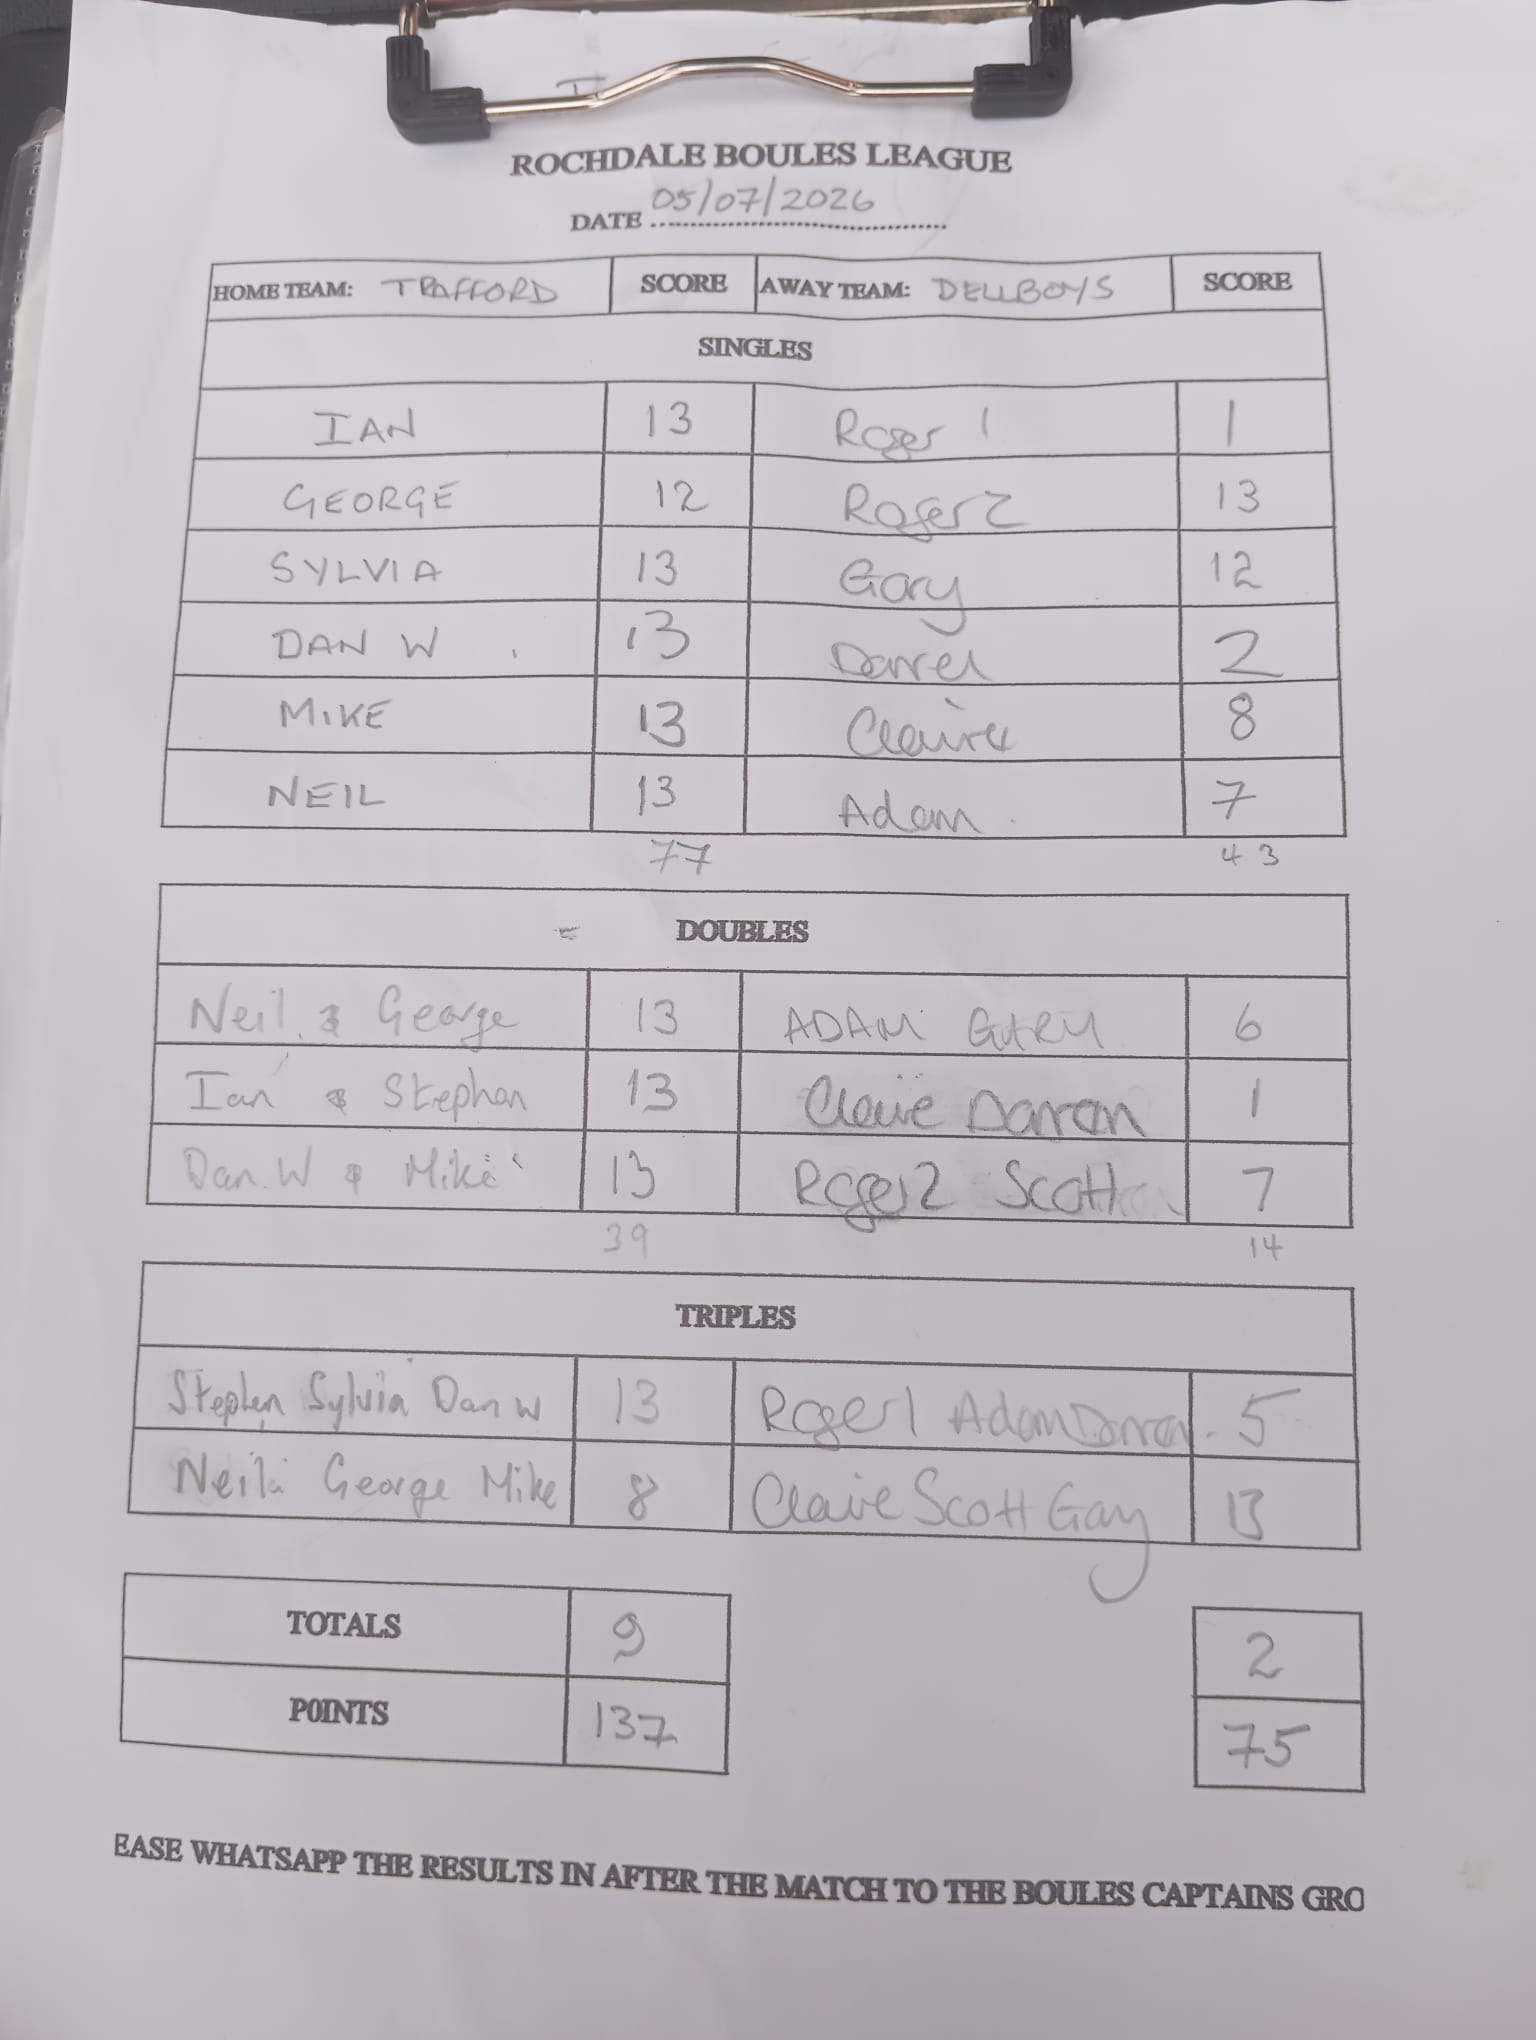 ROCHDALE BOULES LEAGUE
DATE 05/07/2026
HOME TEAM: TRAFFORD SCORE AWAY TEAM: DELLBOYS SCORE
SINGLES
IAN 13 Roger 1 1
GEORGE 12 Roger 2 13
SYLVIA 13 Gary 12
DAN W 13 Darrel 2
MIKE 13 Claire 8
NEIL 13 Adam 7
77 43
DOUBLES
Neil & George 13 ADAM GARY 6
Ian & Stephen 13 Claire Darren 1
Dan.W & Mike 13 Roger 2 Scott 7
39 14
TRIPLES
Stephen Sylvia Dan W 13 Roger 1 Adam Darren 5
Neil George Mike 8 Claire Scott Gary 13
TOTALS 9 2
POINTS 137 75
EASE WHATSAPP THE RESULTS IN AFTER THE MATCH TO THE BOULES CAPTAINS GRO